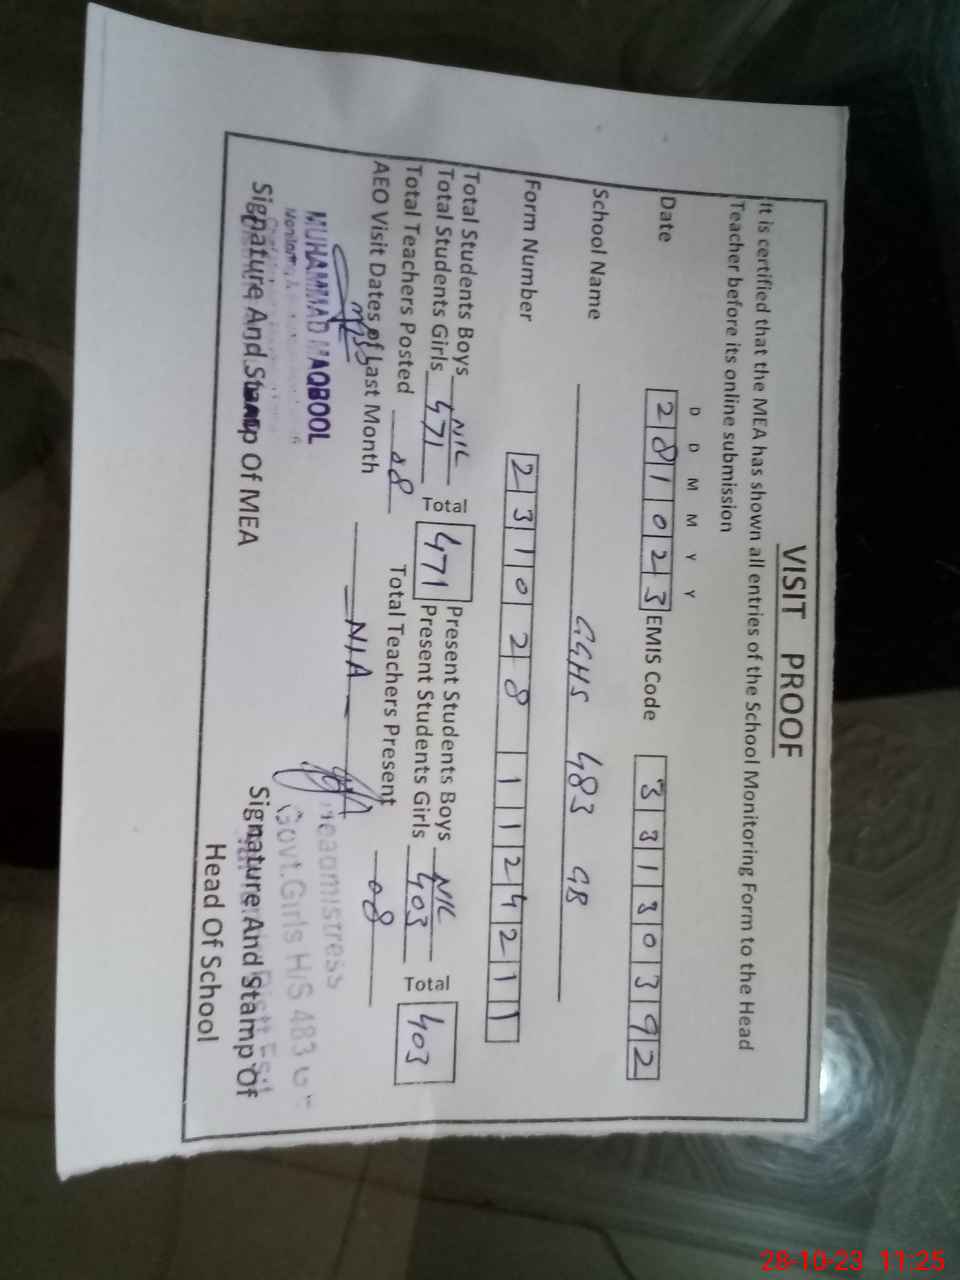 VISIT PROOF
It is certified that the MEA has shown all entries of the School Monitoring Form to the Head
Teacher before its online submission
D D M M Y Y
Date 281023 EMIS Code 33130392
School Name GGHS 483 GB
Form Number 231028 1124211
Total Students Boys NIL Present Students Boys NIL
Total Students Girls 471 Total 471 Present Students Girls 403 Total 403
Total Teachers Posted 08 Total Teachers Present 08
AEO Visit Dates of Last Month N/A
MUHAMMAD MAQBOOL
Headmistress
Govt.Girls H/S 483
Signature And Stamp Of MEA
Signature And Stamp Of
Head Of School
28-10-23 11:25